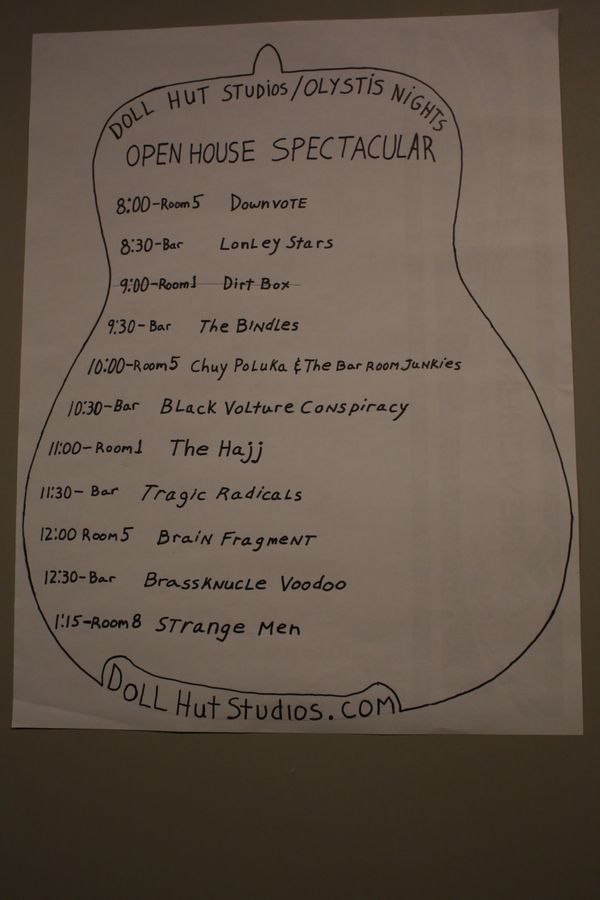 DOLL HUT STUDIOS/OLYSTIS NIGHTS
OPEN HOUSE SPECTACULAR
8:00-Room 5 DOWNVOTE
8:30-Bar LonLey Stars
9:00-Room 1 Dirt Box
9:30-Bar The BINdles
10:00-Room 5 Chuy PoLuKa & The Bar Room JuNKies
10:30-Bar BLack VoLture CoNspiracy
11:00-Room 1 The Hajj
11:30-Bar Tragic RadicaLs
12:00 Room 5 BraiN FragmeNT
12:30-Bar BrassKNucLe Voodoo
1:15-Room 8 STraNge Men
DOLL Hut StudioS.COM